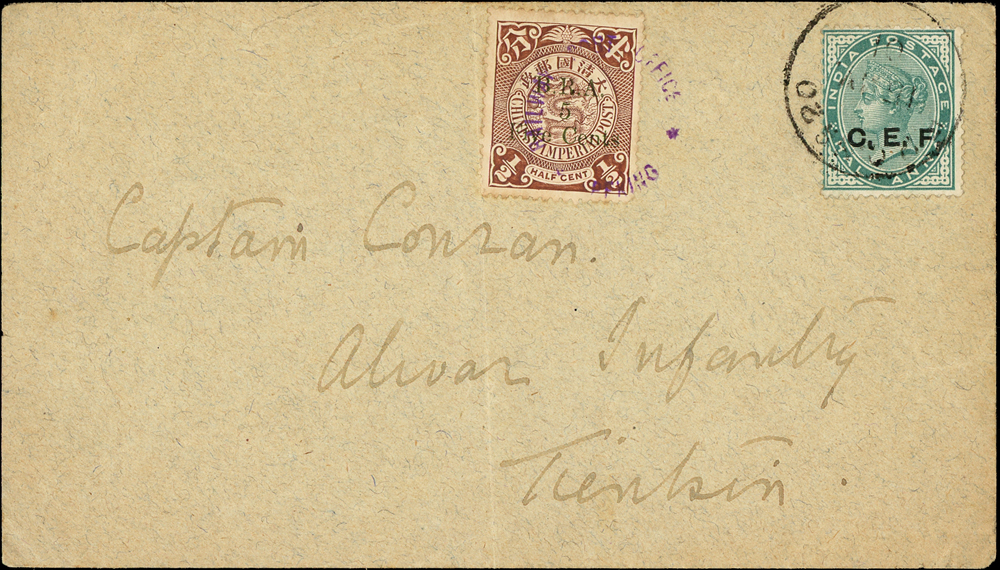 大清國郵政
B.R.A.
5
Five Cents
CHINESE IMPERIAL POST
1/2 HALF CENT 1/2
RAILWAY POST OFFICE
PEKING
INDIA POSTAGE
C. E. F.
HALF ANNA
20
Captain Conran.
Alwar Infantry
Tientsin.